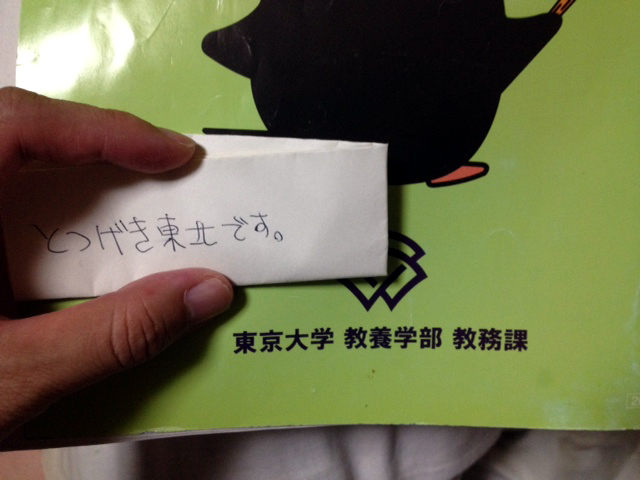 とつげき東北です。
東京大学 教養学部 教務課